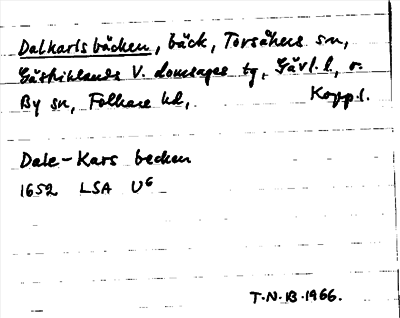 Dalkarlsbäcken, bäck, Torsåkers sn,
Gästriklands V. domsagas tg, Gävl. l., o.
By sn, Folkare hd, Kopp. l.
Dale-Kars becken
1652 LSA U6
T.N.B. 1966.